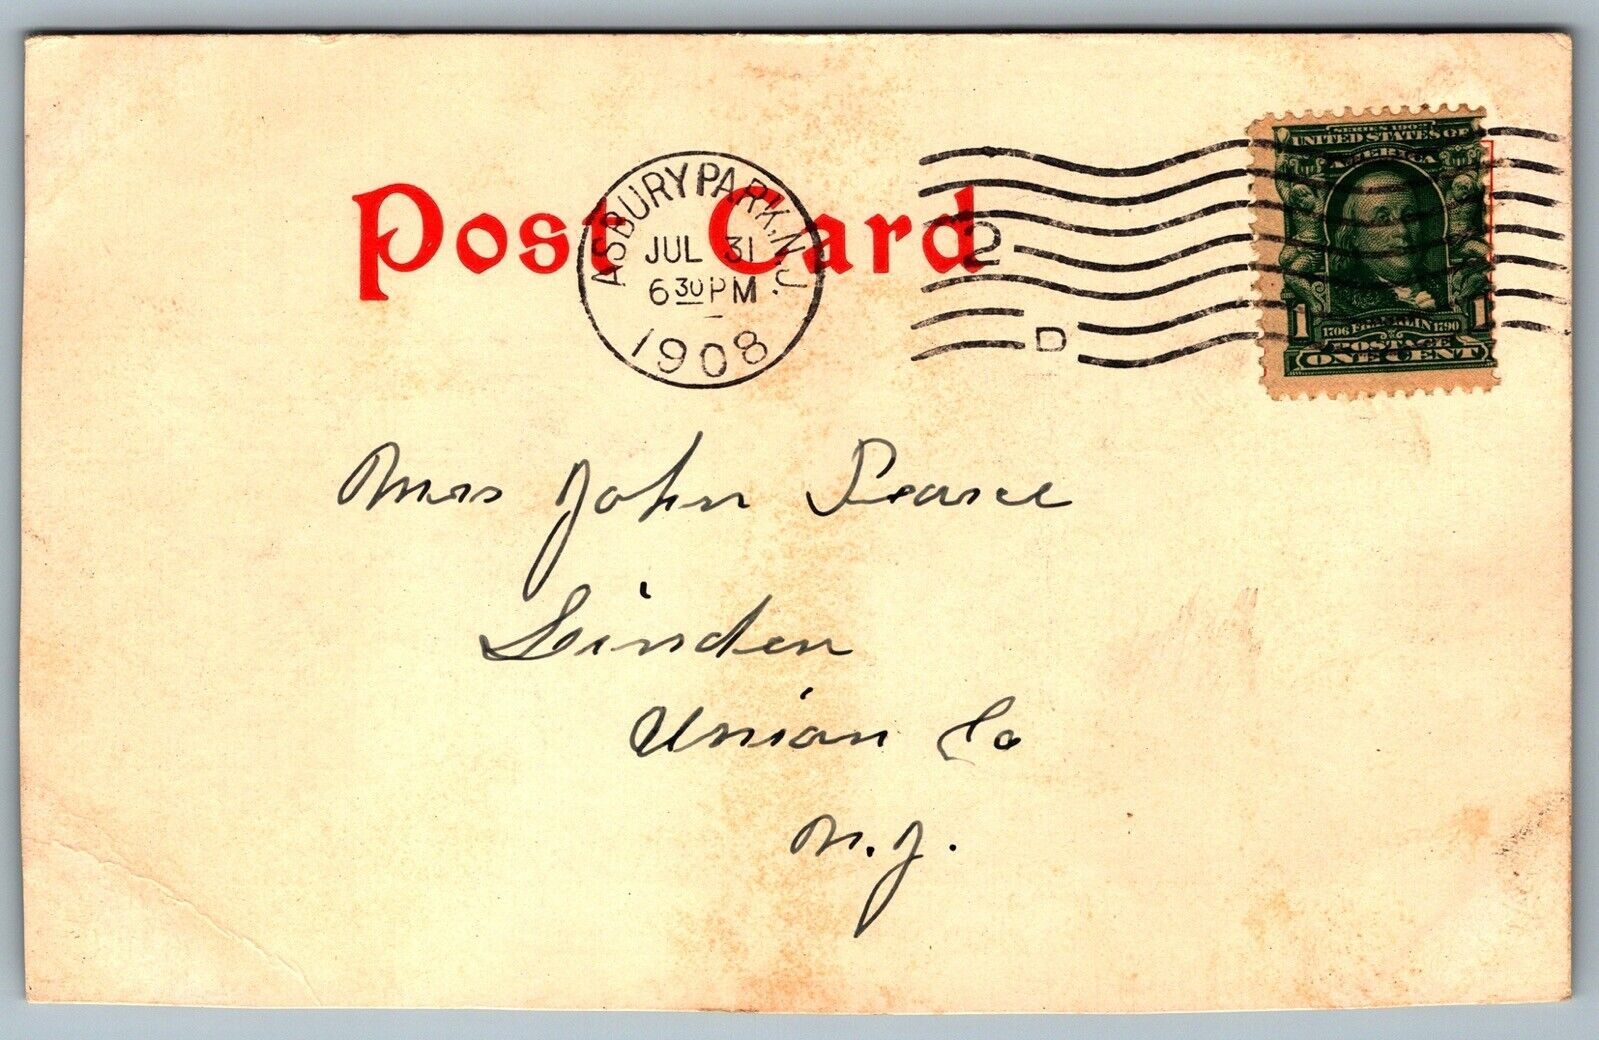 Post Card
ASBURY PARK, N.J.
JUL 31
6 30 PM
1908
2
D
SERIES 1902
UNITED STATES OF
AMERICA
1 1
1706 FRANKLIN 1790
POSTAGE
ONE CENT
Mrs John Pearce
Linden
Union Co
N.J.